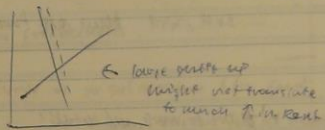 ← large shifts up
might not translate
to much ↑ in Rent